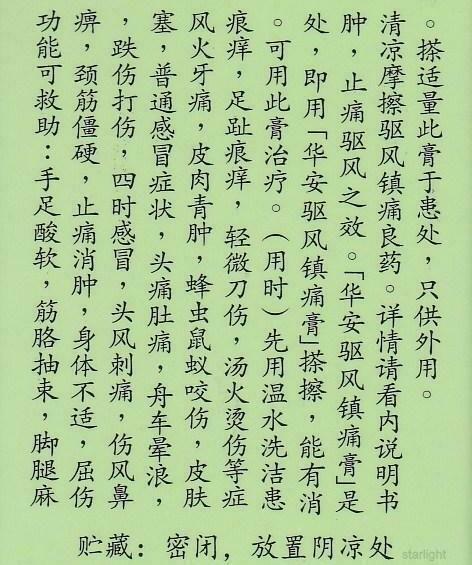 功能可救助：手足酸软，筋胳抽束，脚腿麻
痹，颈筋僵硬，止痛消肿，身体不适，屈伤
，跌伤打伤，四时感冒，头风刺痛，伤风鼻
塞，普通感冒症状，头痛肚痛，舟车晕浪，
风火牙痛，皮肉青肿，蜂虫鼠蚁咬伤，皮肤
痕痒，足趾痕痒，轻微刀伤，汤火烫伤等症
。可用此膏治疗。（用时）先用温水洗洁患
处，即用「华安驱风镇痛膏」搽擦，能有消
肿，止痛驱风之效。「华安驱风镇痛膏」是
清凉摩擦驱风镇痛良药。详情请看内说明书
。搽适量此膏于患处，只供外用。
贮藏：密闭，放置阴凉处
starlight